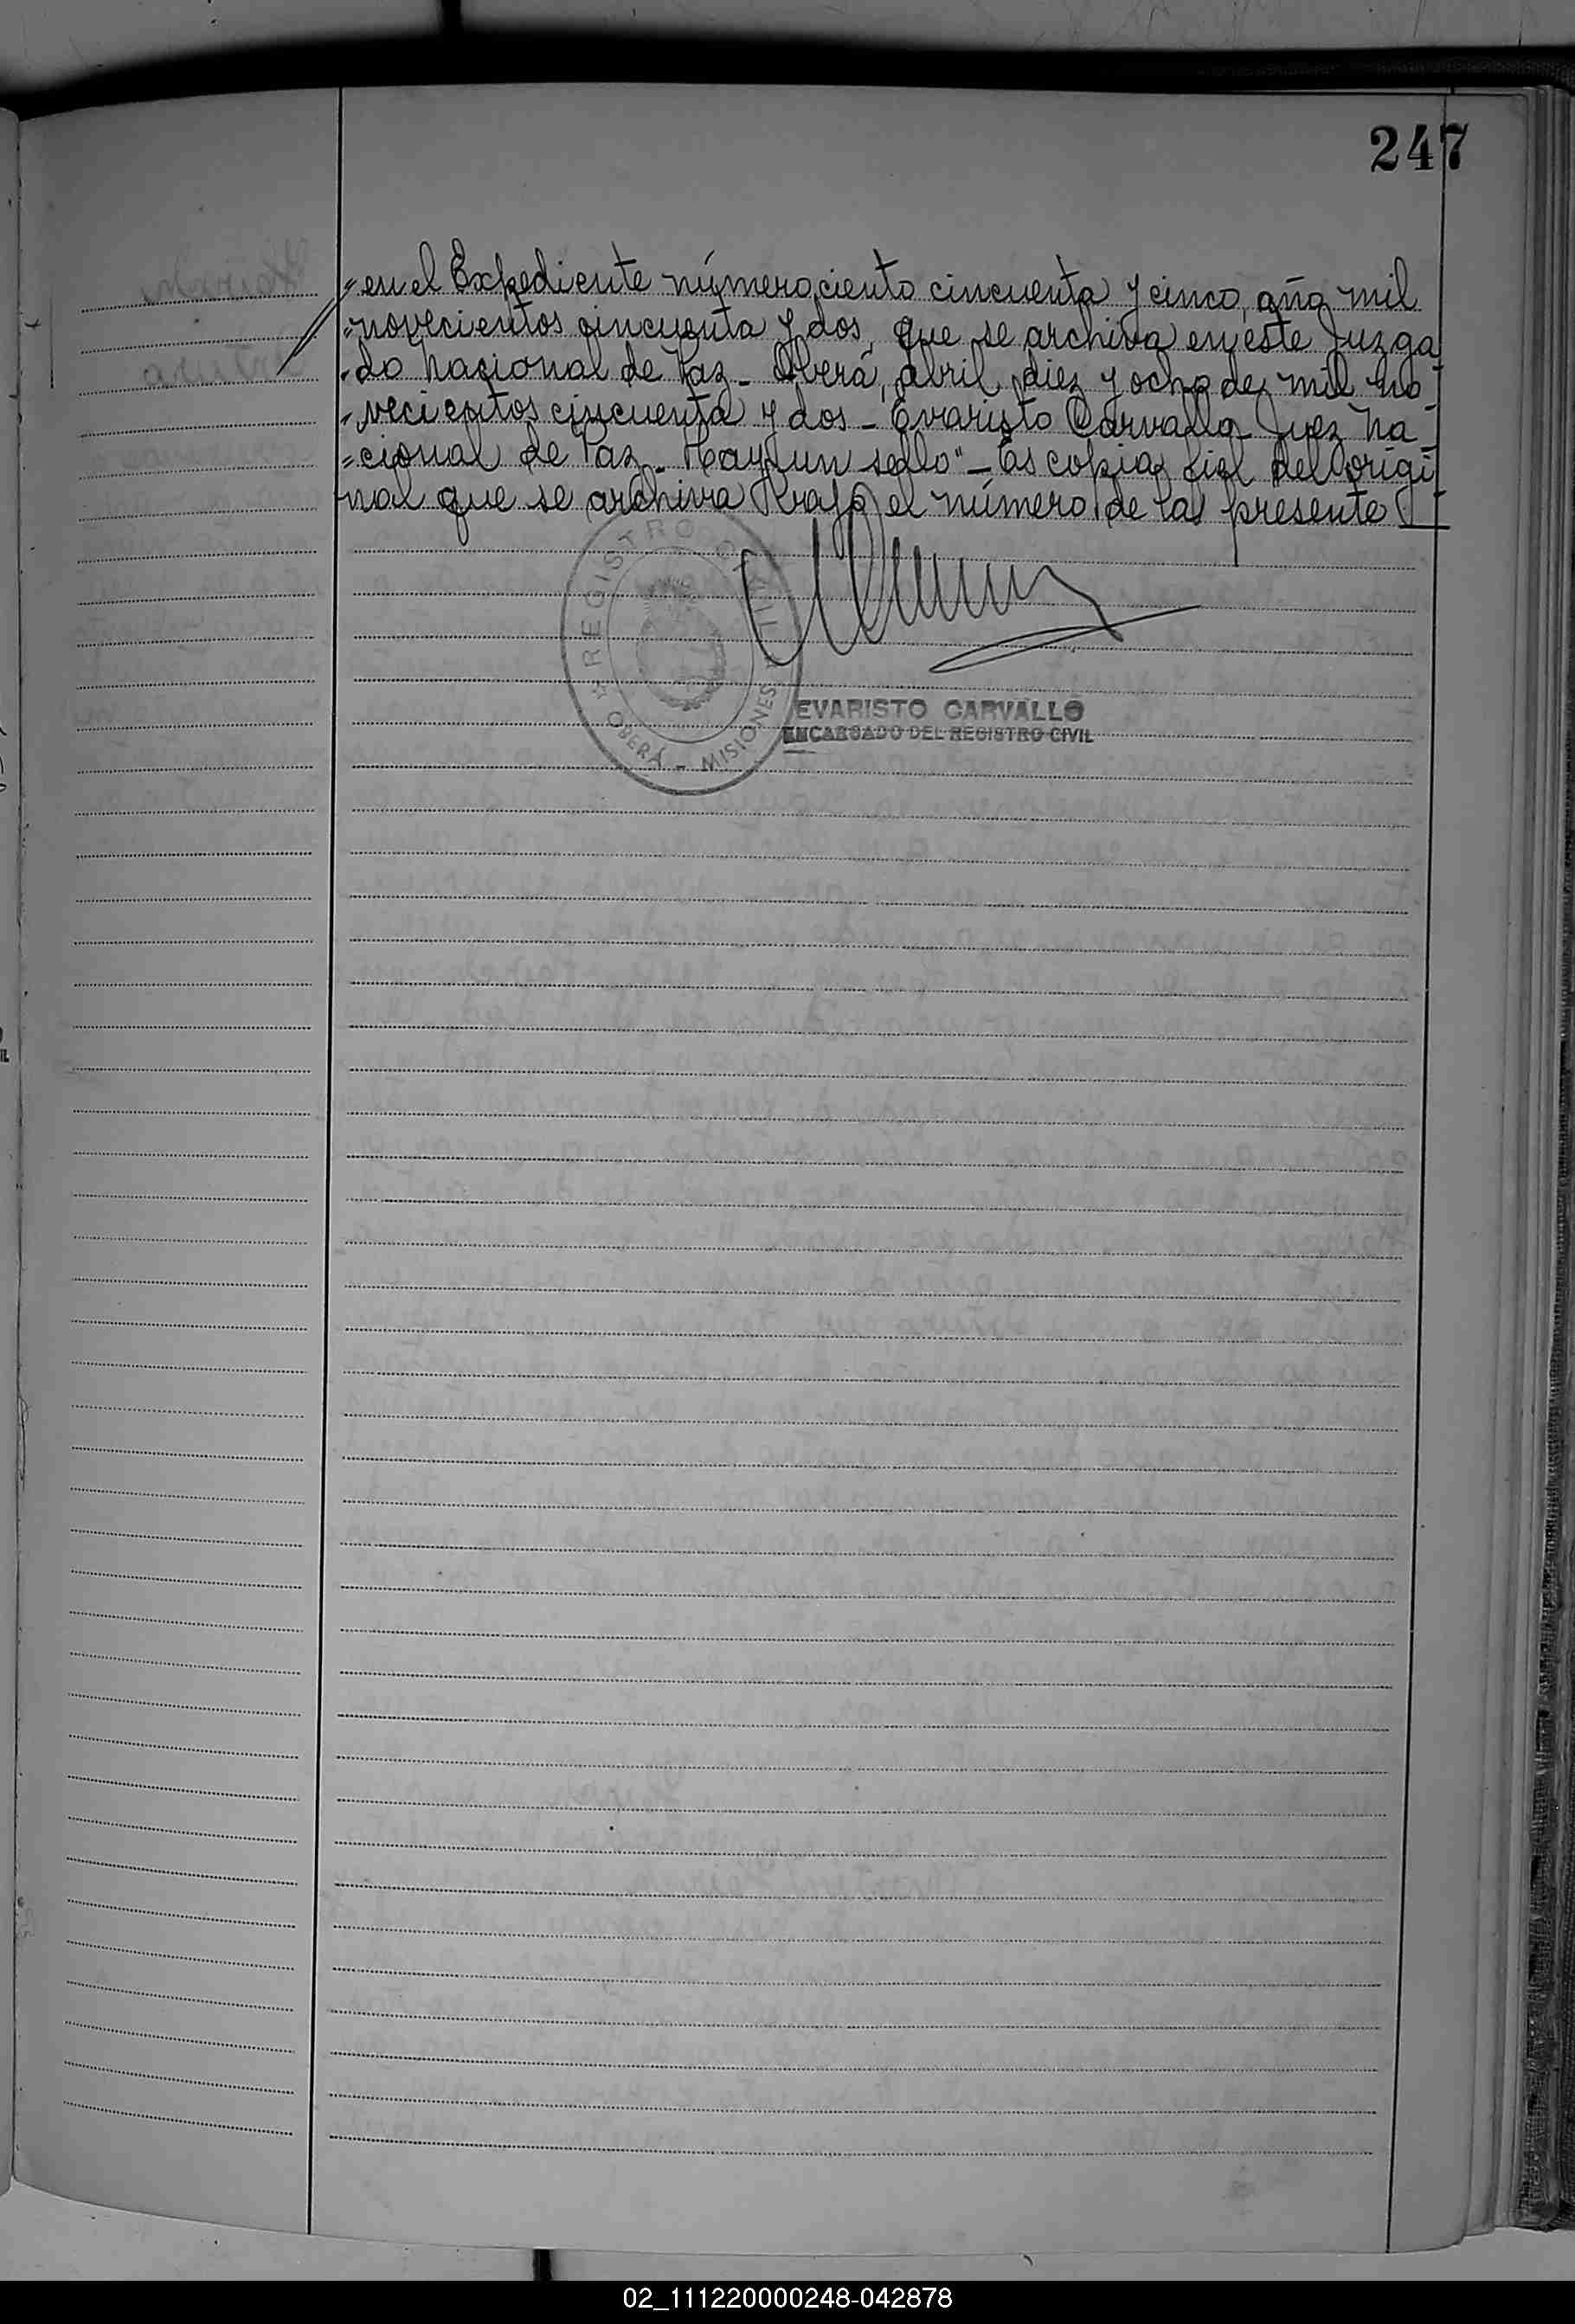 247
"en el Expediente número ciento cincuenta y cinco, año mil
"novecientos cincuenta y dos, que se archiva en este Juzga
"do Nacional de Paz - Oberá, abril diez y ocho de mil no-
"vecientos cincuenta y dos - Evaristo Carvallo - Juez Na-
"cional de Paz - Hay un sello" - Es copia fiel del origi-
nal que se archiva bajo el número de la presente
REGISTRO CIVIL
OBERÁ - MISIONES
EVARISTO CARVALLO
ENCARGADO DEL REGISTRO CIVIL
02_111220000248-042878